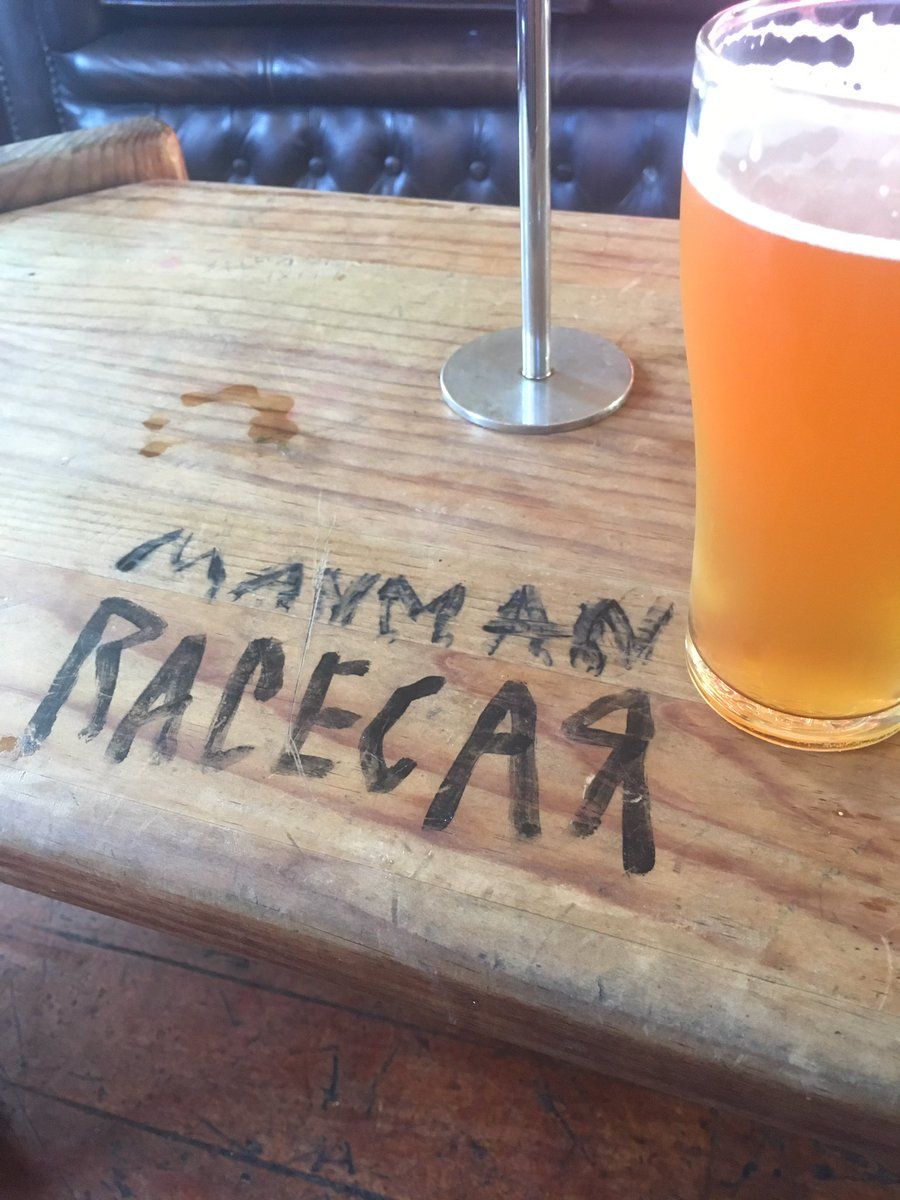 MAYMAN
RACECAR